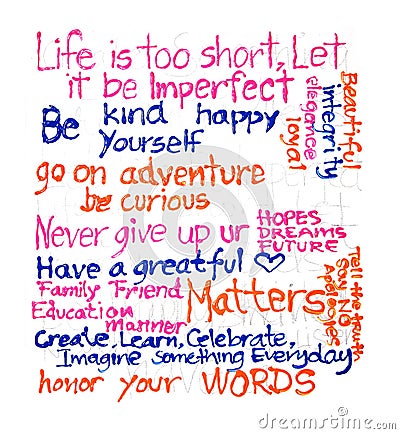 Life is too short, Let
it be Imperfect
Be kind happy
yourself
Beautiful
integrity
elegance
loyal
go on adventure
be curious
Never give up ur HOPES
DREAMS
FUTURE
Have a greatful
Family Friend
Education
manner
Matters
Tell the truth
Say NO
Apologies
Create, Learn, Celebrate,
Imagine something Everyday
honor your WORDS
dreamstime.com